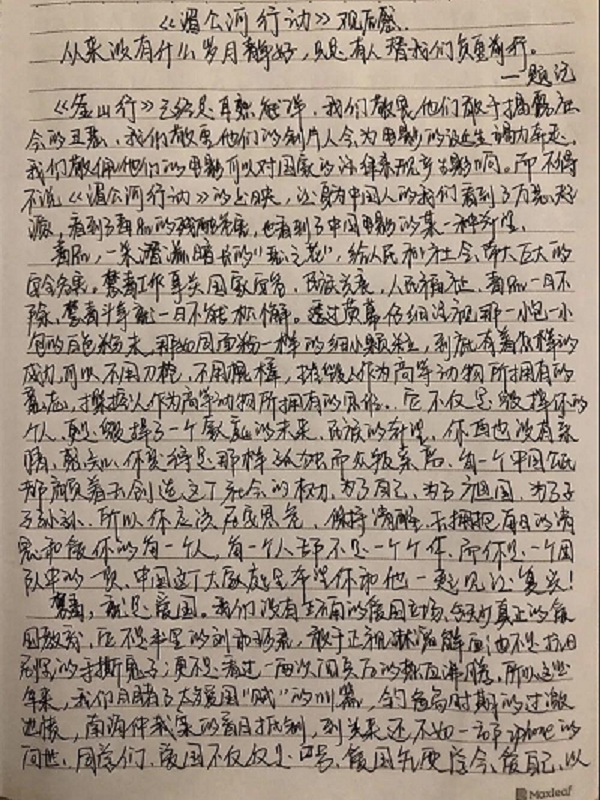 《湄公河行动》观后感
从来没有什么岁月静好，只是有人替我们负重前行。
——题记
《釜山行》已经是耳熟能详，我们敬畏他们敢于揭露社
会的丑恶，我们敬畏他们的制片人会为电影的诞生竭力奔走，
我们敬佩他们的电影可以对国家的法律来说产生影响。而不得
不说《湄公河行动》的上映，让身为中国人的我们看到了万恶起
源，看到了毒品的残酷危害，也看到了中国电影的某一种希望。
毒品，一朵潜滋暗长的“恶之花”，给人民和社会带来巨大的
安全危害。禁毒工作事关国家安危、民族兴衰、人民福祉，毒品一日不
除，禁毒斗争就一日不能松懈。透过荧幕仔细注视那一小包一小
包的白色粉末，那如同面粉一样的细小颗粒，到底有着怎样的
威力，可以不用刀枪，不用棍棒，摧毁人作为高等动物所拥有的
意志，摧毁人作为高等动物所拥有的思维。它不仅是毁掉你的
个人，更是毁掉了一个家庭的未来，民族的希望。你再也没有亲
情，就知心，你变得是那样孤独而众叛亲离。每一个中国公民
都肩负着去创造这个社会的权力，为了自己，为了祖国，为了子
子孙孙，所以你应该居安思危，保持清醒，去拥抱每日的清
晨和爱你的每一个人，每一个人都不是一个个体，而你是一个团
队中的一员，中国这个大家庭是希望你和他一起见证复兴！
禁毒，就是爱国。我们没有上下的爱国立场，
国教育，它不是书里的刻印，敢于正视淋漓鲜血也不是抗日
剧里的手撕鬼子；更不是看过一两次阅兵后的热血沸腾。所以这些
年来，我们目睹了太多爱国“贼”的叫嚣，钓鱼岛时期的过激
游行，南海仲裁案的盲目抵制，到头来还不如一部iphone的
问世。同学们，爱国不仅仅是口号，爱国先要学会爱自己，以
Maxleaf